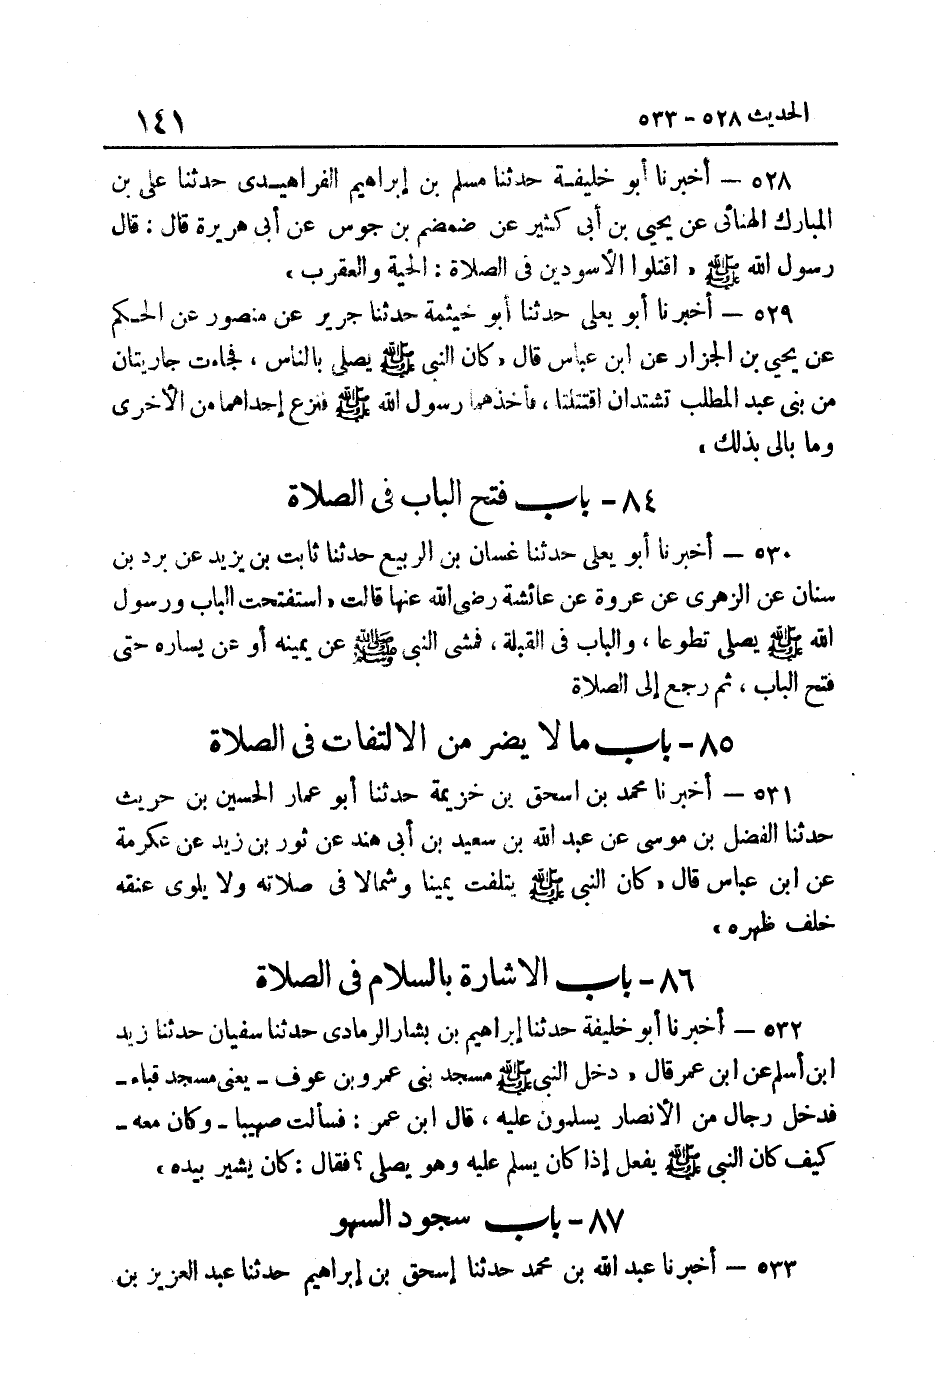 الحديث ٥٢٨ - ٥٣٣ ١٤١
٥٢٨ – أخبرنا أبو خليفة حدثنا مسلم بن إبراهيم الفراهيدى حدثنا على بن
المبارك الهنائى عن يحيى بن أبى كثير عن ضمضم بن جوس عن أبى هريرة قال : قال
رسول الله ﷺ « اقتلوا الأسودين فى الصلاة : الحية والعقرب »
٥٢٩ – أخبرنا أبو يعلى حدثنا أبو خيثمة حدثنا جرير عن منصور عن الحكم
عن يحيى بن الجزار عن ابن عباس قال « كان النبى ﷺ يصلى بالناس ، فجاءت جاريتان
من بنى عبد المطلب تشتدان اقتتلتا ، فأخذهما رسول الله ﷺ فنزع إحداهما من الأخرى
وما بالى بذلك »
٨٤ - باب فتح الباب فى الصلاة
٥٣٠ – أخبرنا أبو يعلى حدثنا غسان بن الربيع حدثنا ثابت بن يزيد عن برد بن
سنان عن الزهرى عن عروة عن عائشة رضى الله عنها قالت « استفتحت الباب ورسول
الله ﷺ يصلى تطوعا ، والباب فى القبلة ، فمشى النبى ﷺ عن يمينه أو عن يساره حتى
فتح الباب ، ثم رجع إلى الصلاة
٨٥ - باب ما لا يضر من الالتفات فى الصلاة
٥٣١ – أخبرنا محمد بن اسحق بن خزيمة حدثنا أبو عمار الحسين بن حريث
حدثنا الفضل بن موسى عن عبد الله بن سعيد بن أبى هند عن ثور بن زيد عن عكرمة
عن ابن عباس قال « كان النبى ﷺ يتلفت يمينا وشمالا فى صلاته ولا يلوى عنقه
خلف ظهره »
٨٦ - باب الاشارة بالسلام فى الصلاة
٥٣٢ – أخبرنا أبو خليفة حدثنا إبراهيم بن بشار الرمادى حدثنا سفيان حدثنا زيد
ابن أسلم عن ابن عمر قال « دخل النبى ﷺ مسجد بنى عمرو بن عوف - يعنى مسجد قباء -
فدخل رجال من الأنصار يسلمون عليه ، قال ابن عمر : فسألت صهيبا - وكان معه -
كيف كان النبى ﷺ يفعل إذا كان يسلم عليه وهو يصلى ؟ فقال : كان يشير بيده »
٨٧ - باب سجود السهو
٥٣٣ – أخبرنا عبد الله بن محمد حدثنا إسحق بن إبراهيم حدثنا عبد العزيز بن